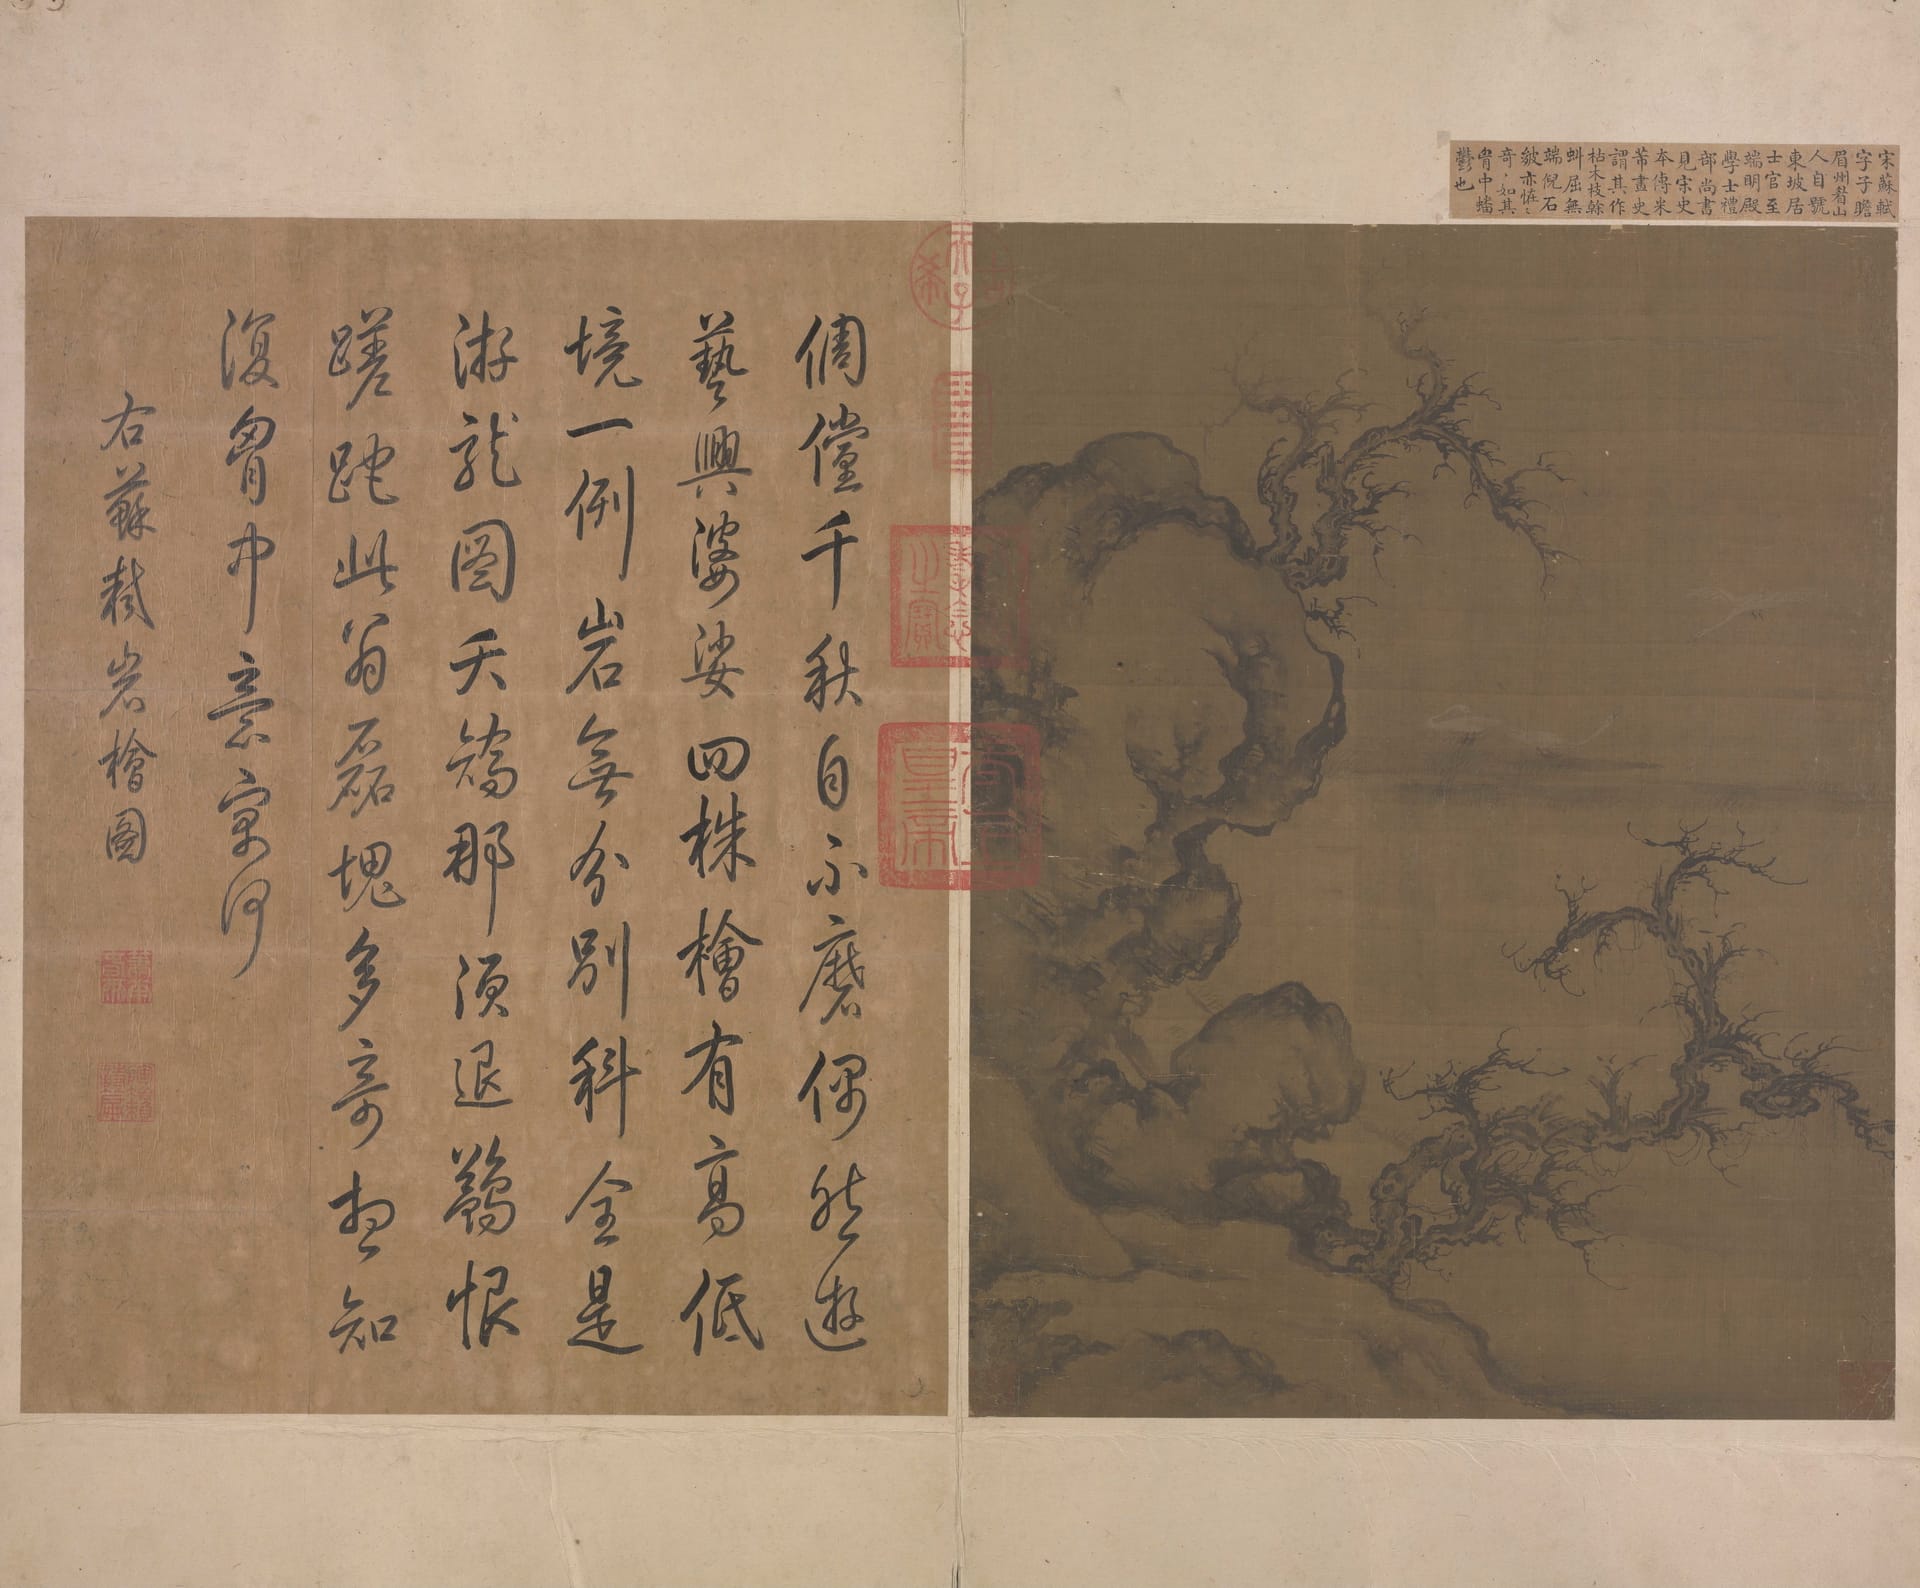 宋蘇軾
字子瞻
眉州眉山
人自號
東坡居
士官至
端明殿
學士禮
部尚書
見宋史
本傳米
芾畫史
謂其作
枯木枝榦
虯屈無
端倪石
皴亦恠〻
奇〻如其
胷中蟠
鬱也
古希天子
八徵耄念之寶
倜儻千秋自不磨偶然遊
藝興婆娑四株檜有高低
境一例岩無分別科全是
游龍圖夭矯那須退鷁恨
蹉跎此翁磊塊多奇想知
復胷中意寓何
右蘇軾岩檜圖